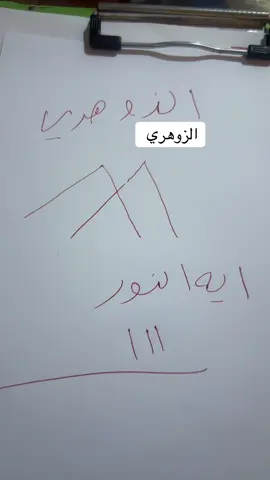 الزوهري
الزوهري
ايه النور
١١١